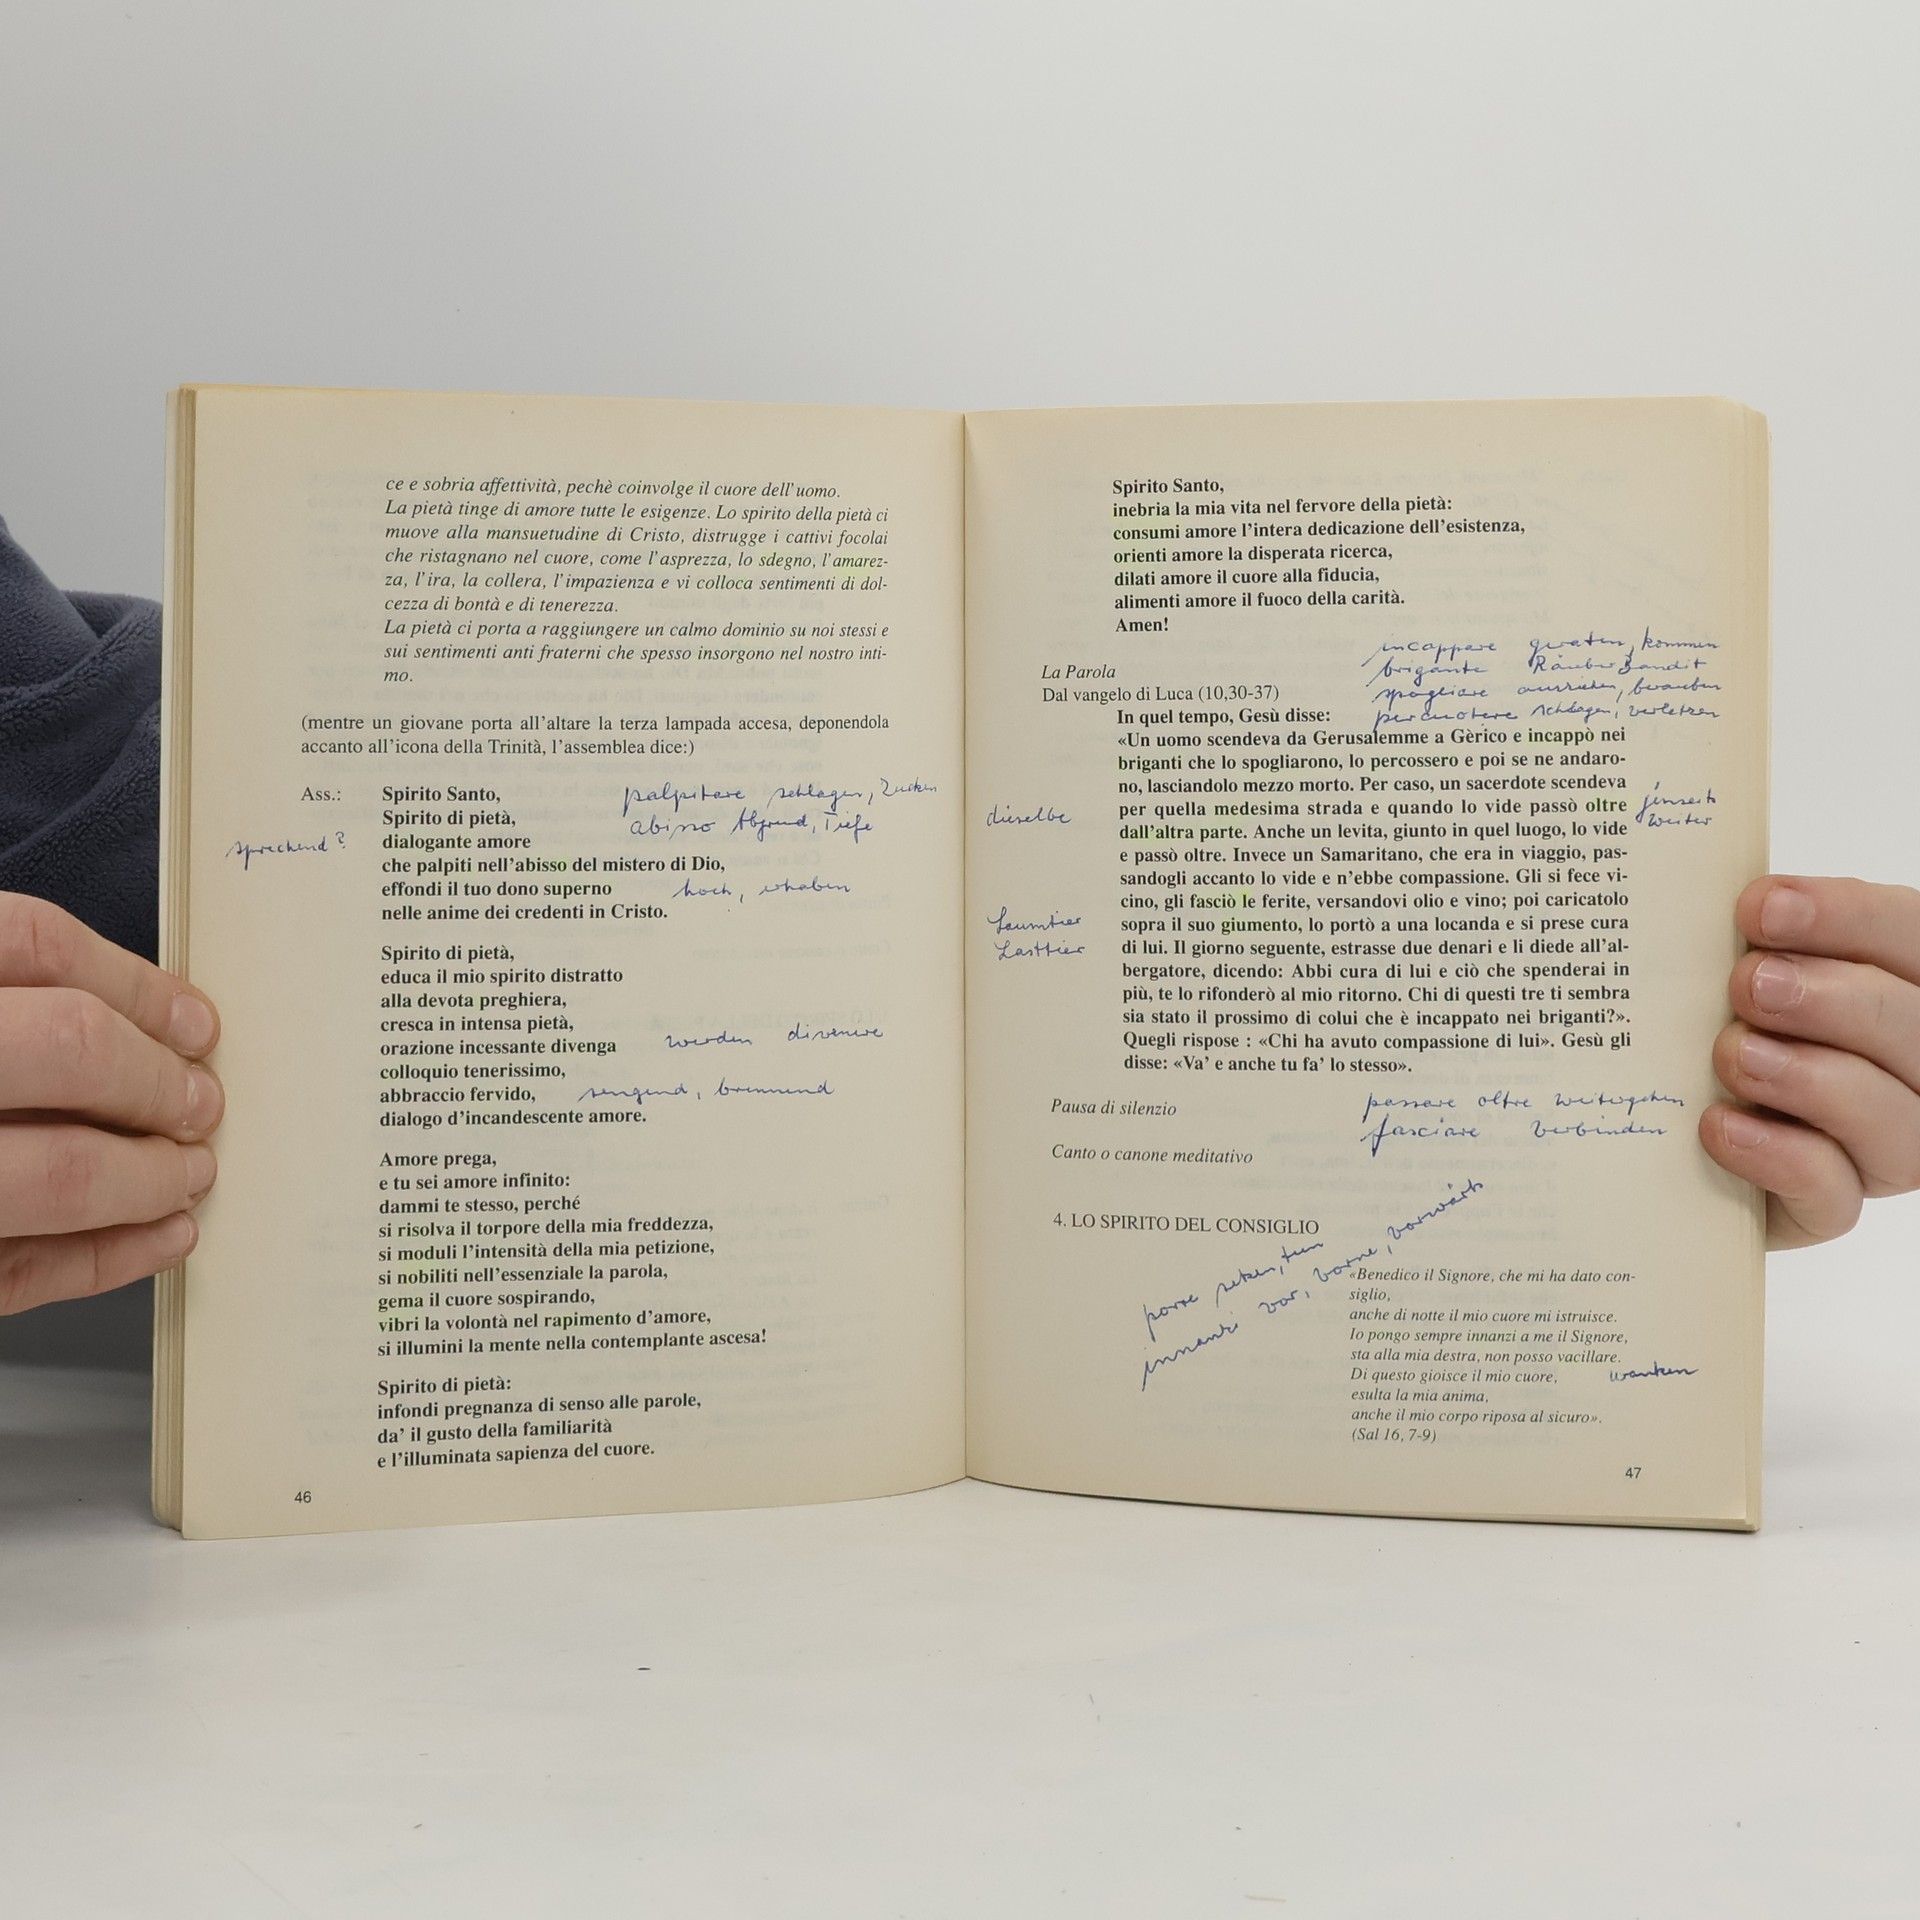 ce e sobria affettività, pechè coinvolge il cuore dell'uomo.
La pietà tinge di amore tutte le esigenze. Lo spirito della pietà ci
muove alla mansuetudine di Cristo, distrugge i cattivi focolai
che ristagnano nel cuore, come l'asprezza, lo sdegno, l'amarez-
za, l'ira, la collera, l'impazienza e vi colloca sentimenti di dol-
cezza di bontà e di tenerezza.
La pietà ci porta a raggiungere un calmo dominio su noi stessi e
sui sentimenti anti fraterni che spesso insorgono nel nostro inti-
mo.
(mentre un giovane porta all'altare la terza lampada accesa, deponendola
accanto all'icona della Trinità, l'assemblea dice:)
Ass.: Spirito Santo, palpitare schlagen, zucken
Spirito di pietà, abisso Abgrund, Tiefe
sprechend? dialogante amore
che palpiti nell'abisso del mistero di Dio,
effondi il tuo dono superno hoch, erhaben
nelle anime dei credenti in Cristo.
Spirito di pietà,
educa il mio spirito distratto
alla devota preghiera,
cresca in intensa pietà,
orazione incessante divenga werden divenire
colloquio tenerissimo,
abbraccio fervido, sengend, brennend
dialogo d'incandescente amore.
Amore prega,
e tu sei amore infinito:
dammi te stesso, perché
si risolva il torpore della mia freddezza,
si moduli l'intensità della mia petizione,
si nobiliti nell'essenziale la parola,
gema il cuore sospirando,
vibri la volontà nel rapimento d'amore,
si illumini la mente nella contemplante ascesa!
Spirito di pietà:
infondi pregnanza di senso alle parole,
da' il gusto della familiarità
e l'illuminata sapienza del cuore.
46
Spirito Santo,
inebria la mia vita nel fervore della pietà:
consumi amore l'intera dedicazione dell'esistenza,
orienti amore la disperata ricerca,
dilati amore il cuore alla fiducia,
alimenti amore il fuoco della carità.
Amen!
incappare geraten, kommen
La Parola brigante Räuber Bandit
Dal vangelo di Luca (10,30-37) spogliare ausziehen, berauben
In quel tempo, Gesù disse: percuotere schlagen, verletzen
«Un uomo scendeva da Gerusalemme a Gèrico e incappò nei
briganti che lo spogliarono, lo percossero e poi se ne andaro-
no, lasciandolo mezzo morto. Per caso, un sacerdote scendeva
dieselbe per quella medesima strada e quando lo vide passò oltre jenseits
dall'altra parte. Anche un levita, giunto in quel luogo, lo vide weiter
e passò oltre. Invece un Samaritano, che era in viaggio, pas-
sandogli accanto lo vide e n'ebbe compassione. Gli si fece vi-
cino, gli fasciò le ferite, versandovi olio e vino; poi caricatolo
Saumtier sopra il suo giumento, lo portò a una locanda e si prese cura
Lasttier di lui. Il giorno seguente, estrasse due denari e li diede all'al-
bergatore, dicendo: Abbi cura di lui e ciò che spenderai in
più, te lo rifonderò al mio ritorno. Chi di questi tre ti sembra
sia stato il prossimo di colui che è incappato nei briganti?».
Quegli rispose : «Chi ha avuto compassione di lui». Gesù gli
disse: «Va' e anche tu fa' lo stesso».
Pausa di silenzio passare oltre weitergehen
fasciare verbinden
Canto o canone meditativo
4. LO SPIRITO DEL CONSIGLIO
porre setzen, tun
innanzi vor, vorne, vorwärts
«Benedico il Signore, che mi ha dato con-
siglio,
anche di notte il mio cuore mi istruisce.
Io pongo sempre innanzi a me il Signore,
sta alla mia destra, non posso vacillare.
Di questo gioisce il mio cuore, wanken
esulta la mia anima,
anche il mio corpo riposa al sicuro».
(Sal 16, 7-9)
47